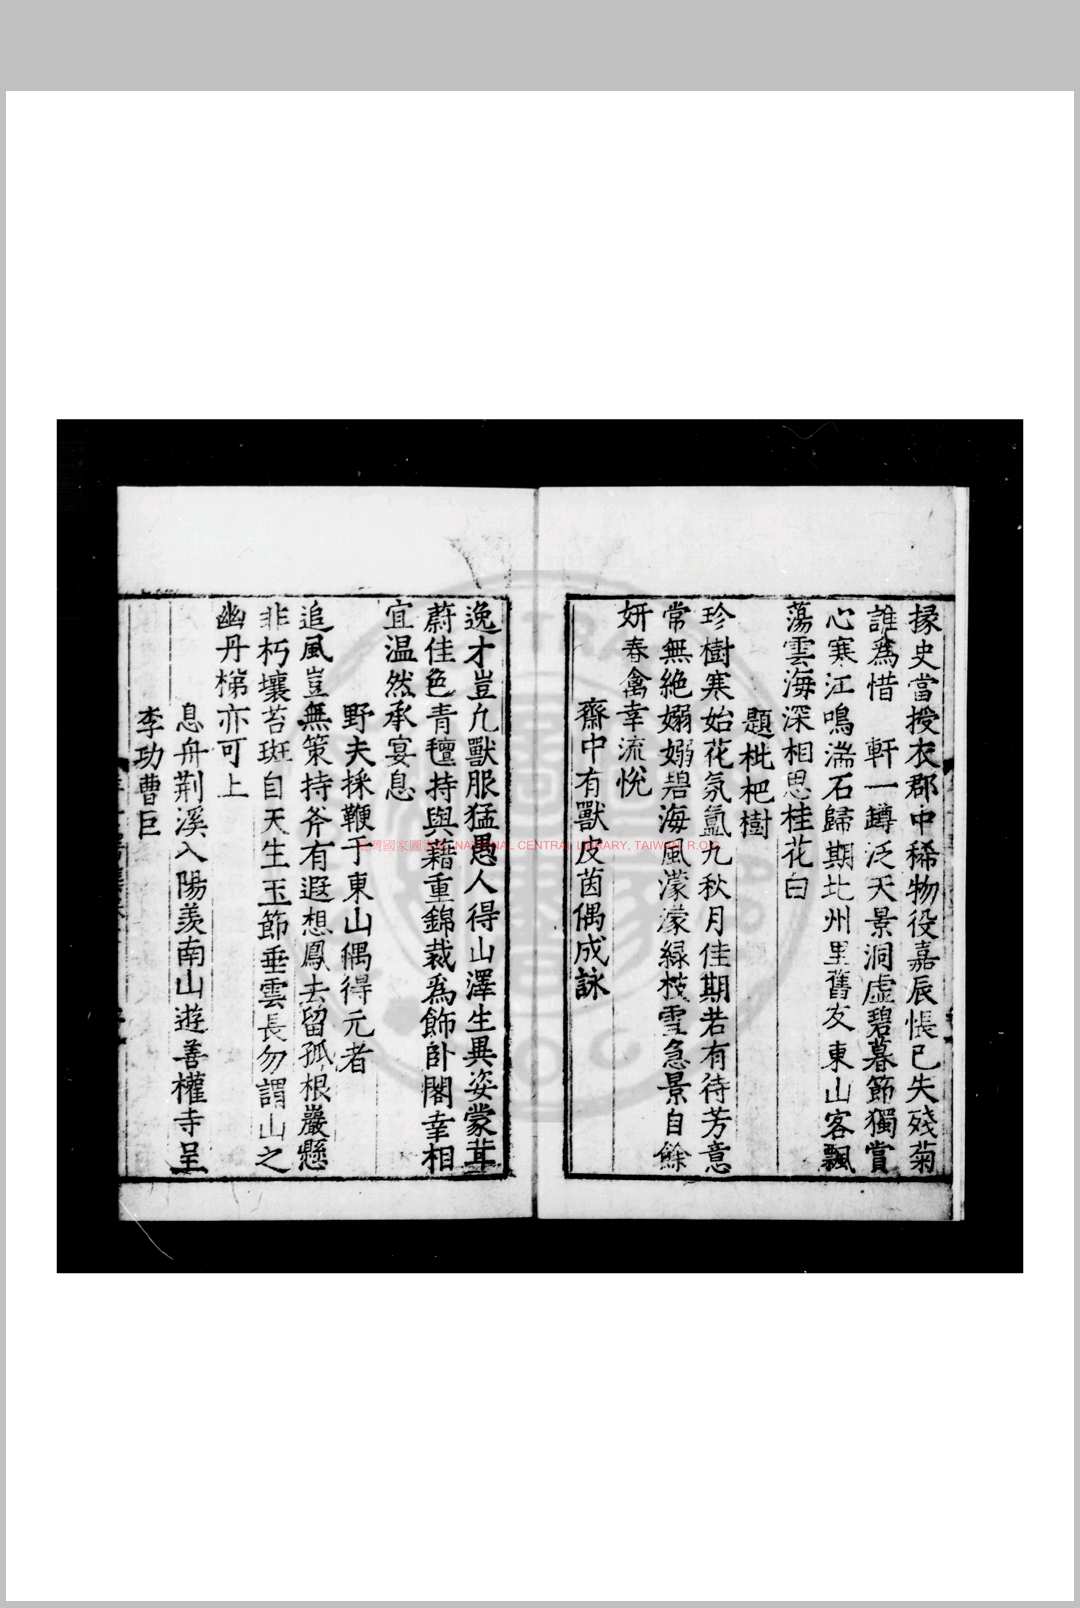 掾史當授衣郡中稀物役嘉辰悵已失殘菊
誰爲惜 軒一罇泛天景洞虛碧暮節獨賞
心寒江鳴湍石歸期北州里舊友東山客飄
蕩雲海深相思桂花白
題枇杷樹
珍樹寒始花氛氳九秋月佳期若有待芳意
常無絶嫋嫋碧海風濛濛綠枝雪急景自餘
妍春禽幸流悅
齋中有獸皮茵偶成詠
逸才豈凡獸服猛愚人得山澤生異姿蒙茸
蔚佳色青氊持與藉重錦裁爲飾卧閣幸相
宜温然承宴息
野夫採鞭于東山偶得元者
追風豈無策持斧有遐想鳳去留孤根巖懸
非朽壤苔斑自天生玉節垂雲長勿謂山之
幽丹梯亦可上
息舟荆溪入陽羨南山遊善權寺呈
李功曹巨
國家圖 NATIONAL CENTRAL LIBRARY, TAIWAN R.O.C